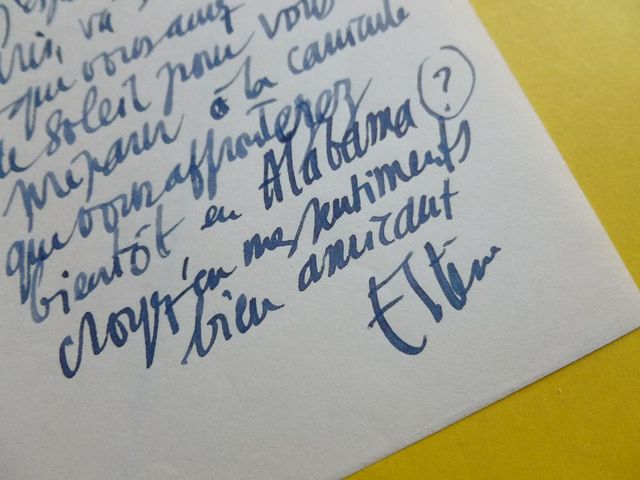 que vous ayez
de soleil pour vous
préparer à la canicule
que vous affronterez
bientôt en Alabama (?)
croyez en mes sentiments
bien amicaux